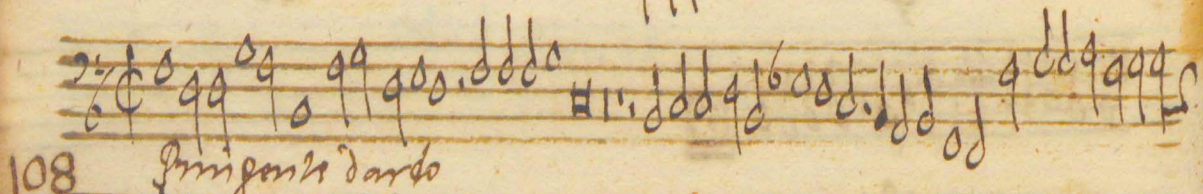 108 Pungente dardo